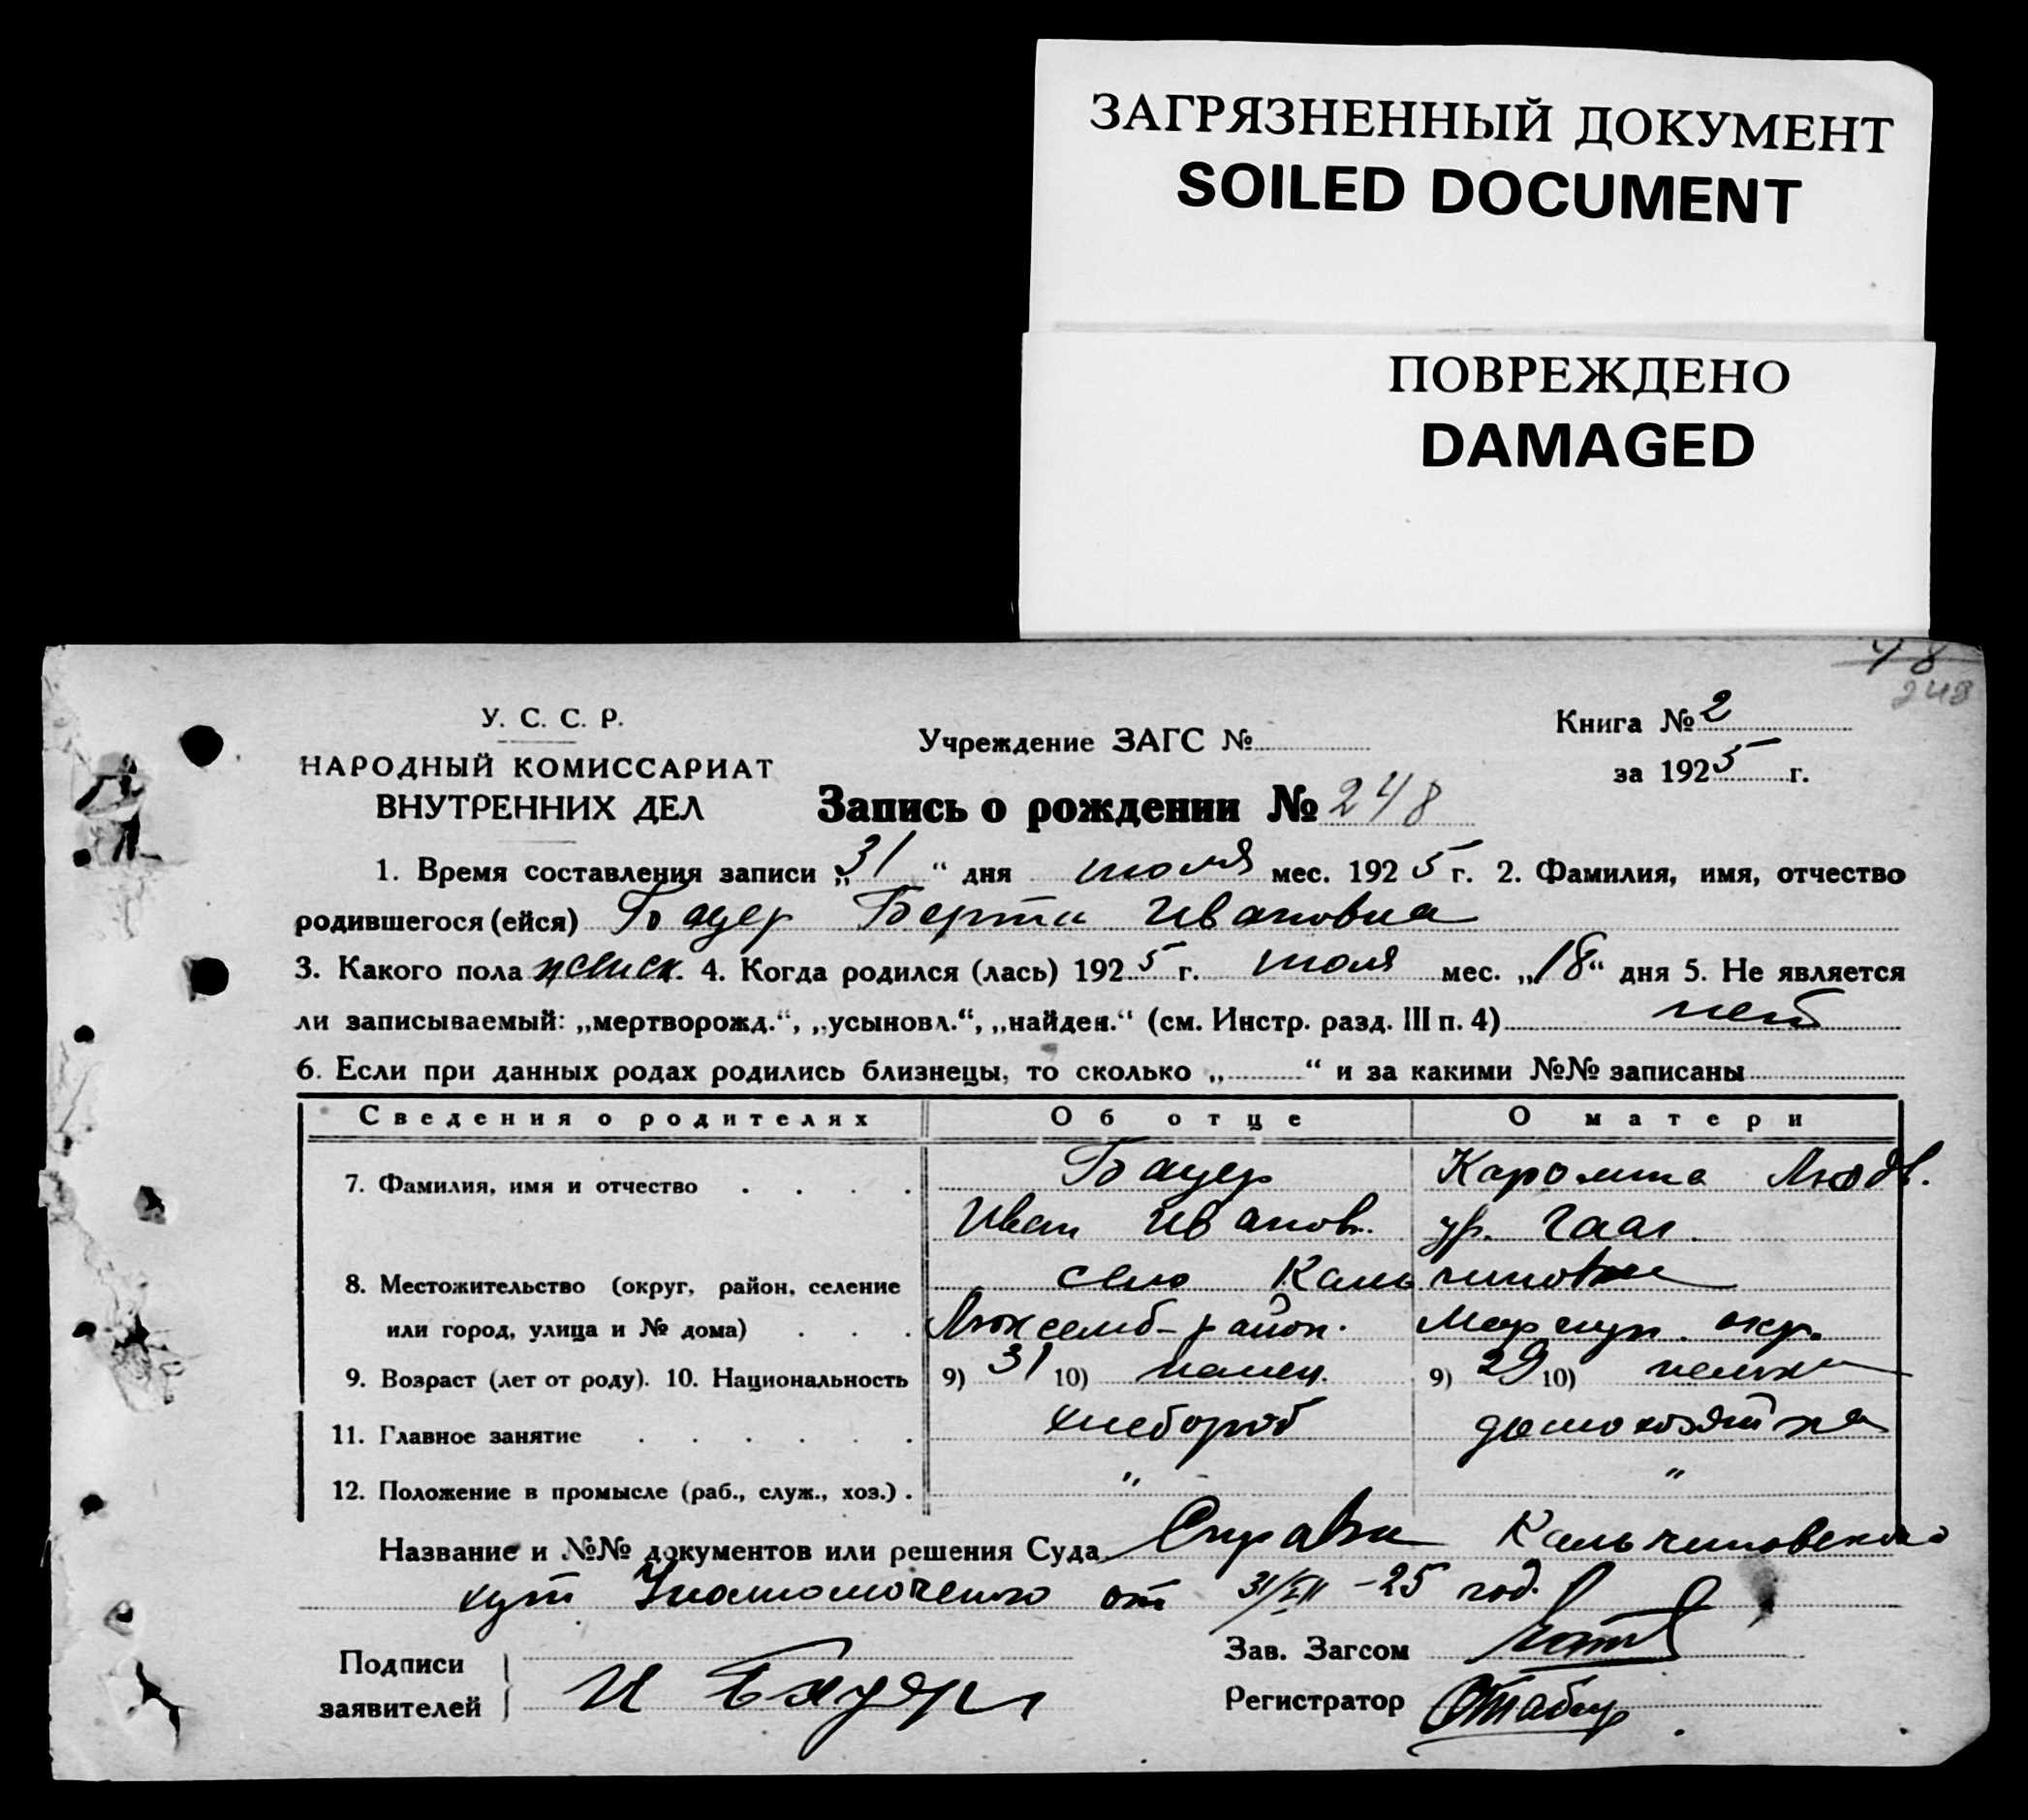 ЗАГРЯЗНЕННЫЙ ДОКУМЕНТ
SOILED DOCUMENT
ПОВРЕЖДЕНО
DAMAGED
48
248
У. С. С. Р.
НАРОДНЫЙ КОМИССАРИАТ
ВНУТРЕННИХ ДЕЛ
Учреждение ЗАГС №
Книга № 2
за 1925 г.
Запись о рождении № 248
1. Время составления записи „31“ дня июля мес. 1925 г. 2. Фамилия, имя, отчество
родившегося (ейся) Бауер Берта Ивановна
3. Какого пола женск. 4. Когда родился (лась) 1925 г. июля мес. „18“ дня 5. Не является
ли записываемый: „мертворожд.“, „усыновл.“, „найден.“ (см. Инстр. разд. III п. 4) нет
6. Если при данных родах родились близнецы, то сколько „ “ и за какими №№ записаны
Сведения о родителях Об отце О матери
7. Фамилия, имя и отчество . . . . Бауер Каролина Людв.
Иван Иванов. ур. Гааг.
8. Местожительство (округ, район, селение село Кальчиновка
или город, улица и № дома) . . . Люксемб-район. Мариуп. окр.
9. Возраст (лет от роду). 10. Национальность 9) 31 10) немец. 9) 29 10) немка
11. Главное занятие . . . . . . хлебороб домохозяйка
12. Положение в промысле (раб., служ., хоз.) . " "
Название и №№ документов или решения Суда Справка Кальчиновского
от 31/VII -25 год.
Подписи
заявителей
И Бауер
Зав. Загсом
Регистратор